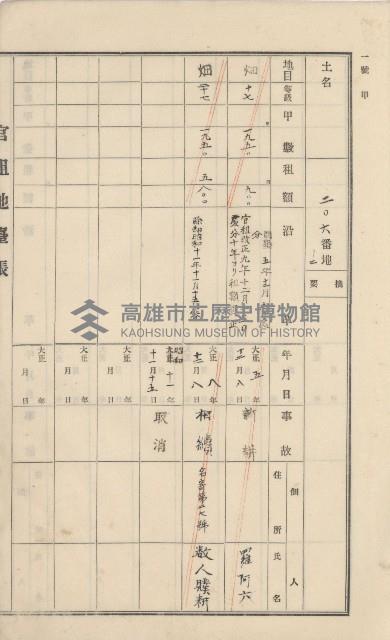 一號甲
土名
二〇六番地
二
摘要
地目
等級
甲數
租額
沿革
年月日
事故
個人
住所
氏名
畑
十七
一九五〇
九〇〇
大正五年
十二月八日
新耕
羅阿六
官租改正九年十二月
畑
一九五〇
五八〇〇
除却昭和十一年十一月十五日
大正八年
十二月八日
相續
名寄第
號
數人贌耕
昭和
大正十一年
十一月十五日
取消
大正 年
月 日
大正 年
月 日
大正 年
月 日
官租地臺帳
高雄市立歷史博物館
KAOHSIUNG MUSEUM OF HISTORY